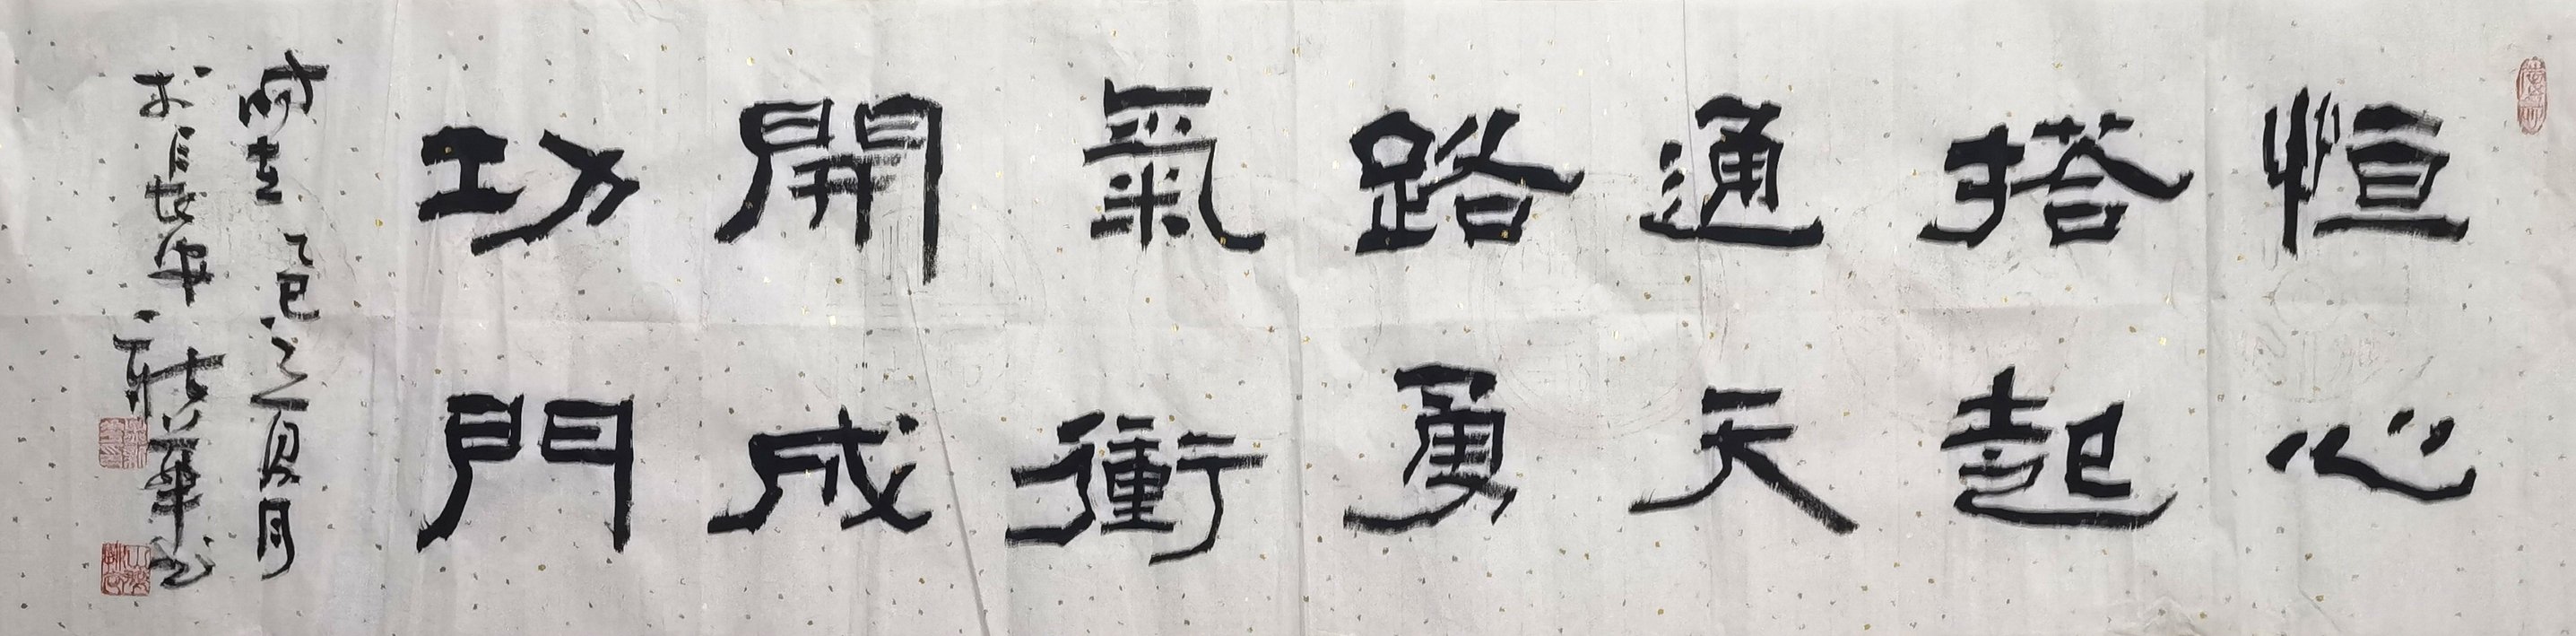 恒心
搭起
通天
路勇
氣衝
開成
功門
時在乙巳之夏月
於長安
華書